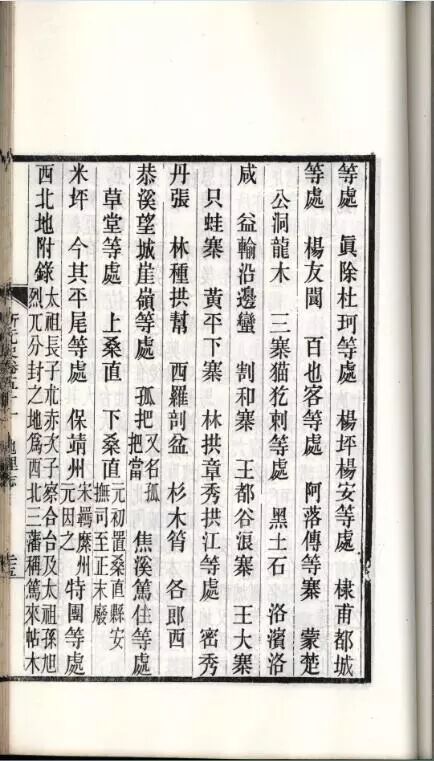 等處　眞除杜珂等處　楊坪楊安等處　棣甫都城
等處　楊友閬　百也客等處　阿落傳等寨　蒙楚
公洞龍木　三寨猫犵剌等處　黑土石　洛濱洛
咸　益輪沿邊蠻　割和寨　王都谷浪寨　王大寨
只蛙寨　黃平下寨　林拱章秀拱江等處　密秀
丹張　林種拱幫　西羅剖盆　杉木箐　各郎西
恭溪望城崖嶺等處　孤把又名孤把當　焦溪篤住等處
草堂等處　上桑直　下桑直元初置桑直縣安撫司至正末廢
米坪　今其平尾等處　保靖州宋羈縻州元因之　特團等處
西北地附錄太祖長子朮赤次子察合台及太祖孫旭烈兀分封之地爲西北三藩稱篤來帖木